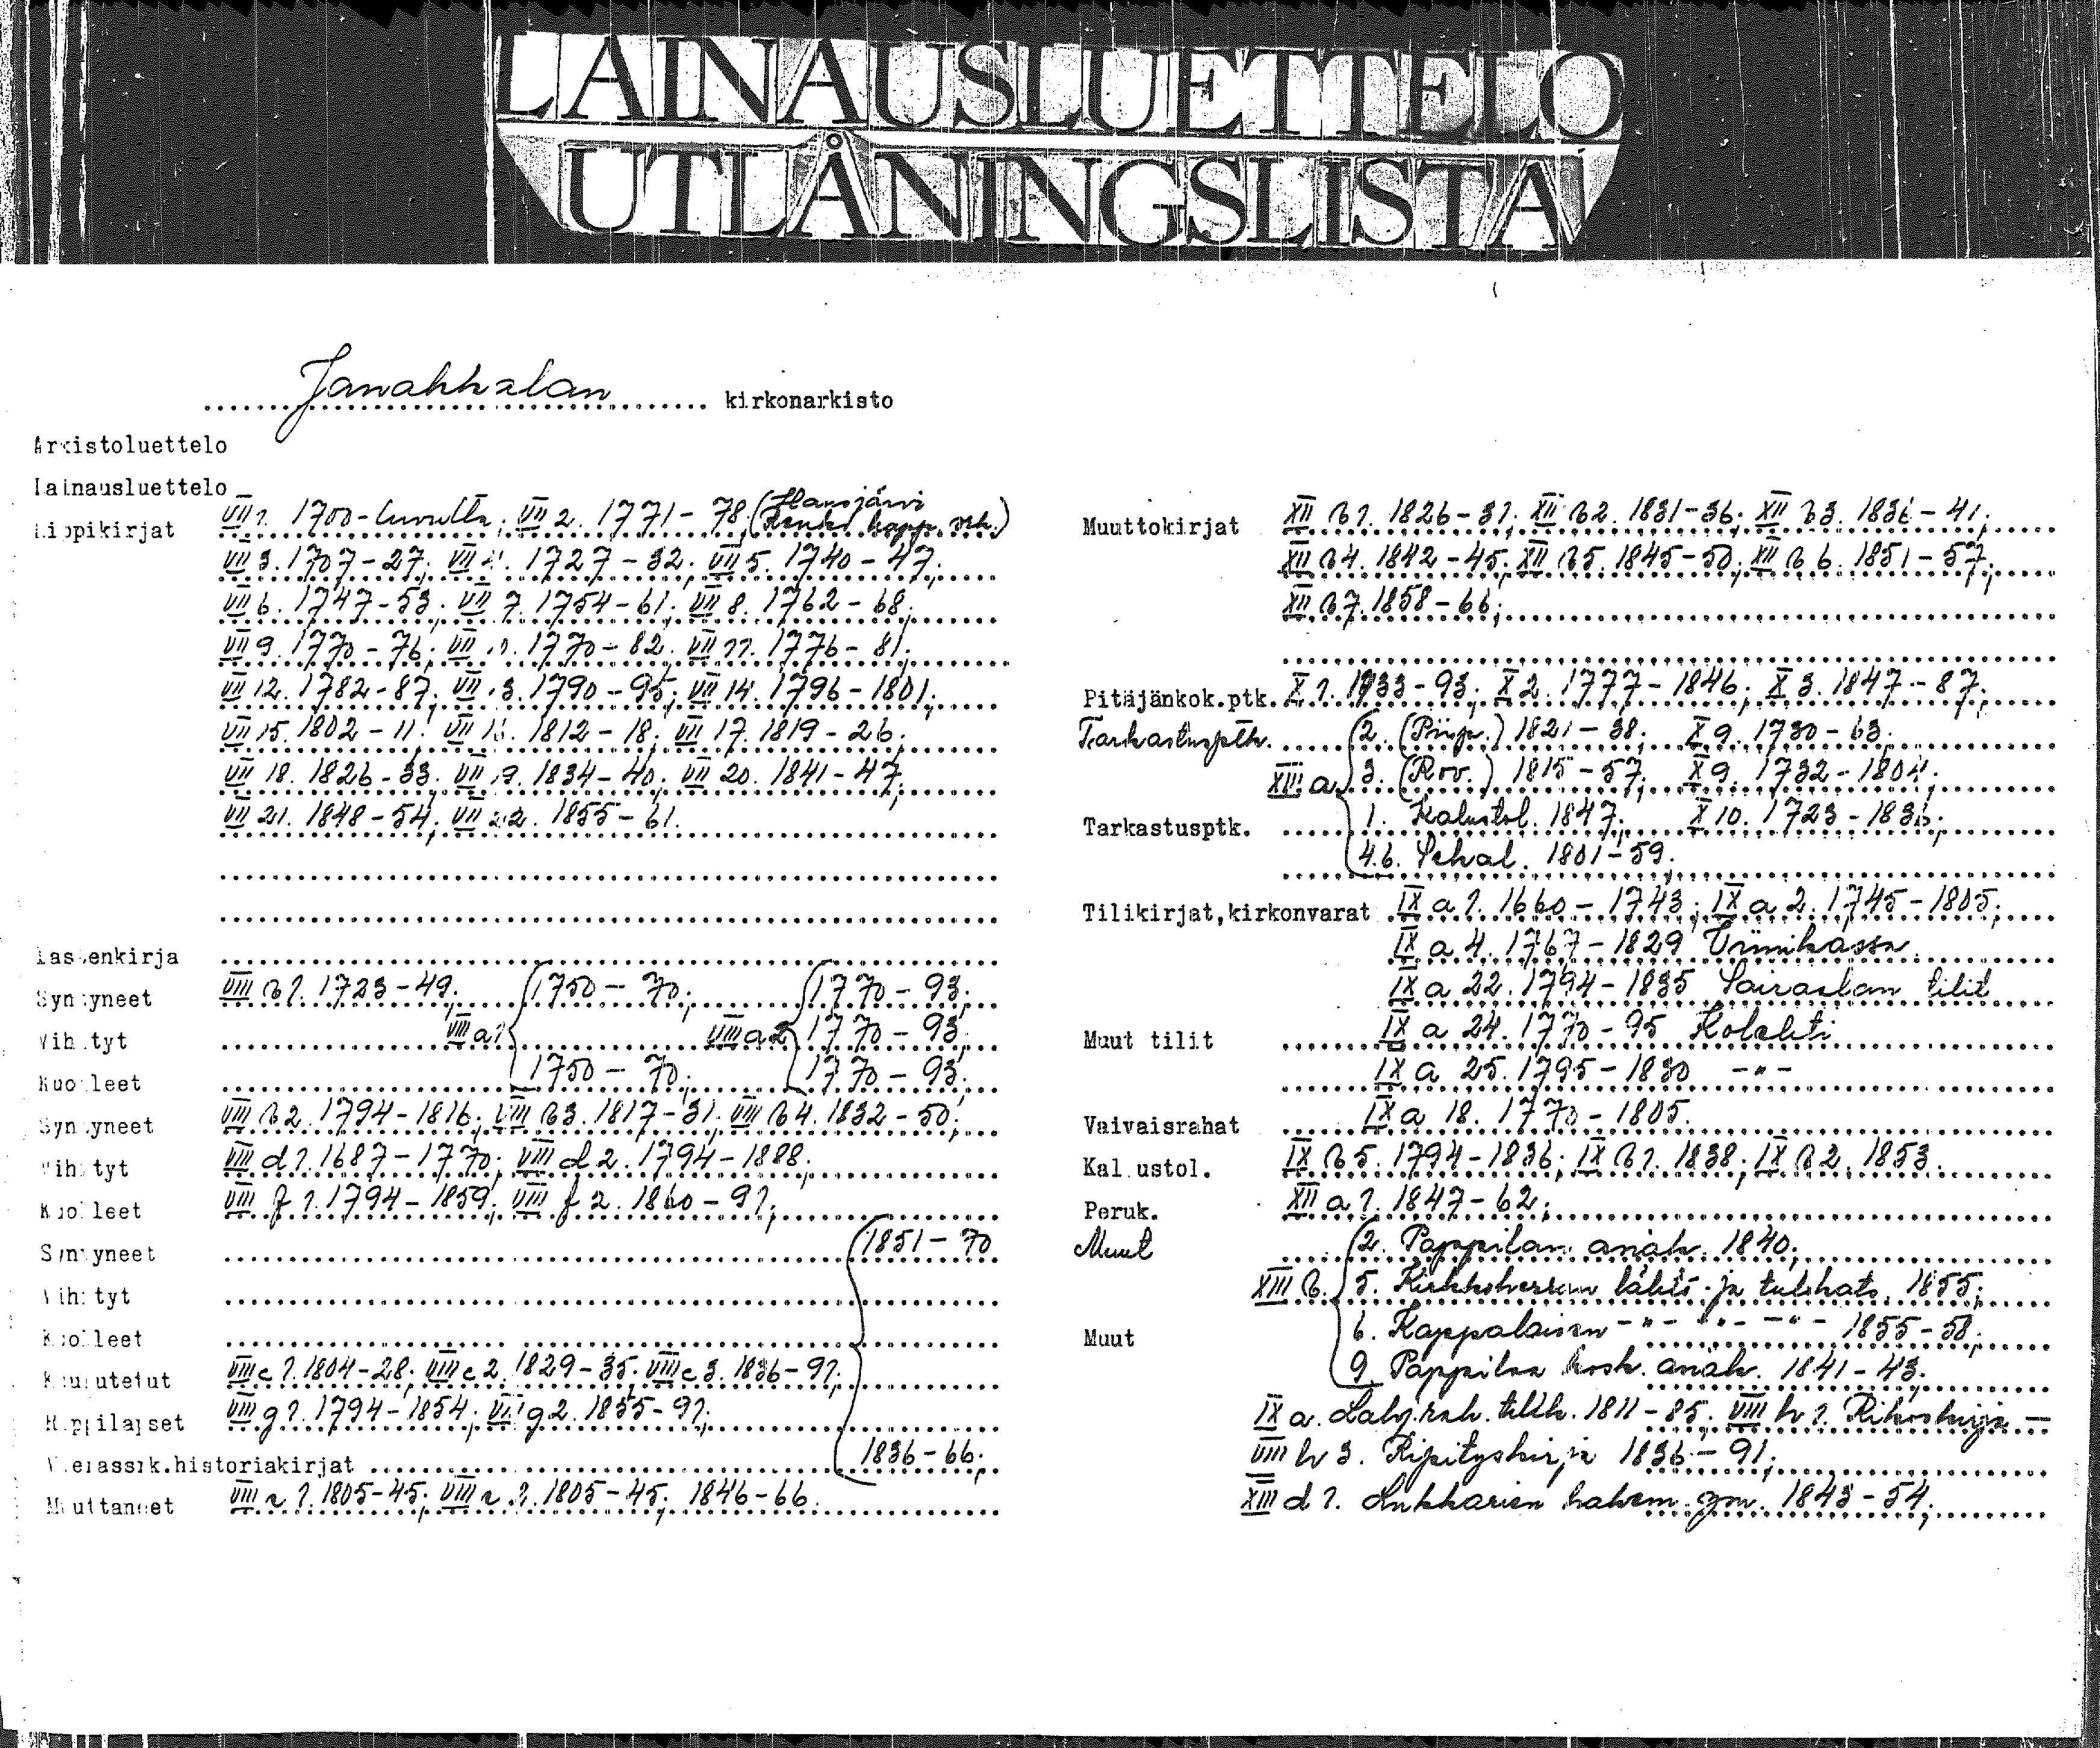 LAINAUSLUETTELO
UTLÅNINGSLISTA
Janakkalan kirkonarkisto
Arkistoluettelo
Lainausluettelo
Rippikirjat VII 1. 1700-luvulta; VII 2. 1771-78 (Hausjärvi
kapp. srk.)
VII 3. 1707-27; VII 4. 1727-32; VII 5. 1740-47;
VII 6. 1747-53; VII 7. 1754-61; VII 8. 1762-68;
VII 9. 1770-76; VII 10. 1770-82; VII 11. 1776-81;
VII 12. 1782-87; VII 13. 1790-95; VII 14. 1796-1801;
VII 15. 1802-11; VII 16. 1812-18; VII 17. 1819-26;
VII 18. 1826-33; VII 19. 1834-40; VII 20. 1841-47;
VII 21. 1848-54; VII 22. 1855-61.
Lastenkirja
Syntyneet VIII b 1. 1723-49; 1750-70; 1770-93;
Vihityt VIII a 1 VIII a 2 1770-93;
Kuolleet 1750-70; 1770-93;
Syntyneet VIII b 2. 1794-1816; VIII b 3. 1817-31; VIII b 4. 1832-50;
Vihityt VIII d 1. 1687-1770; VIII d 2. 1794-1888;
Kuolleet VIII f 1. 1794-1859; VIII f 2. 1860-91;
Syntyneet 1851-70
Vihityt
Kuolleet
Kuulutetut VIII c 1. 1804-28; VIII c 2. 1829-35; VIII c 3. 1836-91;
Rippilapset VIII g 1. 1794-1854; VIII g 2. 1855-91;
Vierassrk.historiakirjat 1836-66;
Muuttaneet VIII a 1. 1805-45; VIII a 2. 1805-45; 1846-66.
Muuttokirjat XII b 1. 1826-31; XII b 2. 1831-36; XII b 3. 1836-41;
XII b 4. 1842-45; XII b 5. 1845-50; XII b 6. 1851-57;
XII b 7. 1858-66;
Pitäjänkok.ptk. X 1. 1733-93; X 2. 1777-1846; X 3. 1847-87;
Tarkastusptk. 2. (Piisp.) 1821-38; X 9. 1730-63.
XIII a 3. (Rov.) 1815-57; X 9. 1732-1804;
Tarkastusptk. 1. Kalustol. 1847; X 10. 1723-1836;
4.6. Sekal. 1801-59.
Tilikirjat,kirkonvarat IX a 1. 1660-1743; IX a 2. 1745-1805;
IX a 4. 1767-1829
IX a 22. 1794-1835 Sairaalan tilit
Muut tilit IX a 24. 1770-95 Kolehti
IX a 25. 1795-1830 -"-
Vaivaisrahat IX a 18. 1770-1805.
Kalustol. IX b 5. 1794-1836; IX b 1. 1838; IX b 2. 1853.
Peruk. XII a 1. 1847-62;
Muut 2. Pappilan anäk. 1840;
XIII b. 5. Kirkkoherran lähtö- ja tulokats. 1855;
Muut 6. Kappalaisen -"- -"- -"- 1855-58.
9. Pappilaa kosk. anäk. 1841-43;
IX a. tilik. 1811-85; VIII h 1. Rikoskirja -
VIII h 3. Ripityskirja 1836-91;
XIII d 1. Lukkarien hakem. ym. 1843-54;